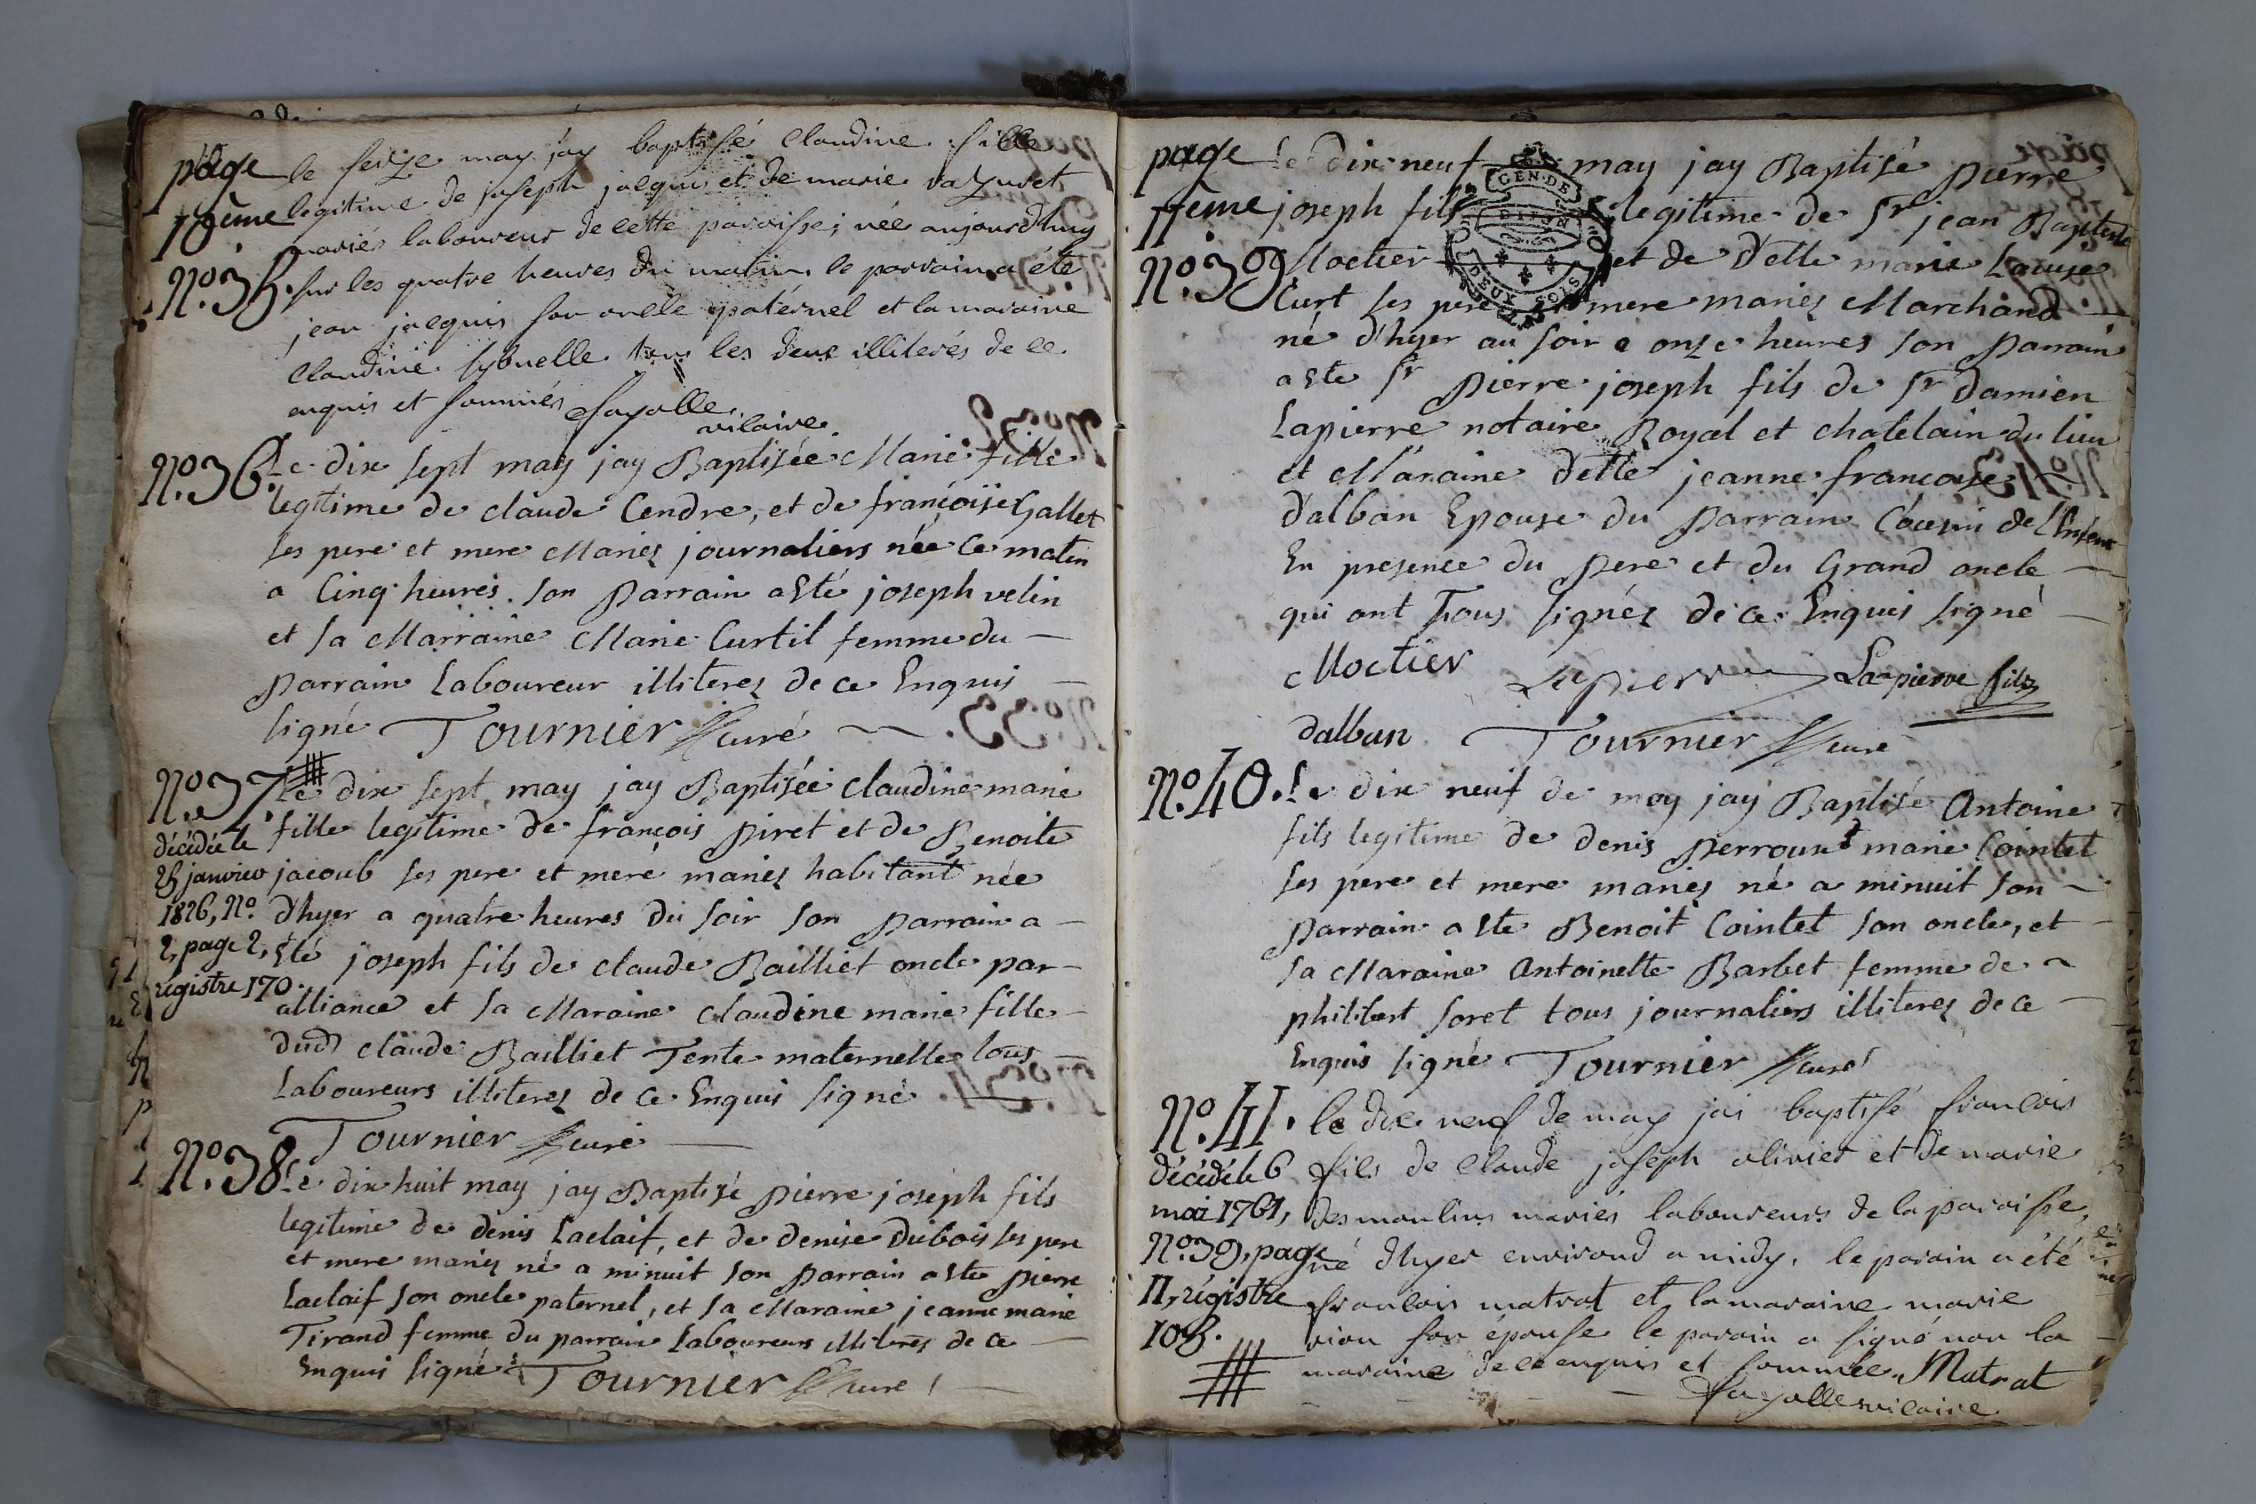 page
10ème
le seize may jay baptisé Claudine fille
legitime de joseph jalquin et de marie
mariés laboureur de cette paroisse; née aujourdhuy
N.º 35. sur les quatre heures du matin, le parrain a été
jean jalquin son oncle paternel et la maraine
Claudine les deux illiterés de ce
enquis et sommés fayolle
vicaire
N.º 36. Le dix sept may jay Baptisée Marie fille
legitime de claude Cendre, et de françoise Gallet
ses pere et mere Mariez journaliers née ce matin
a Cinq heures. son Parrain a Eté joseph velin
et sa Marraine Marie Curtil femme du
Parrain Laboureur illiterez de ce Enquis
signé Tournier curé
N.º 37. Le dix sept may jay Baptisée claudine marie
fille legitime de françois Piret et de Benoite
jacoub ses pere et mere mariez habitant née
d'hyer a quatre heures du soir son Parrain a
Eté joseph fils de claude Bailliet oncle par
alliance et sa Maraine claudine marie fille
dud claude Bailliet Tente maternelle tous
Laboureurs illiterez de ce Enquis signé
Tournier curé
décédée le
25 janvier
1826, Nº
2, page 2,
régistre 170.
N.º 38. Le dix huit may jay Baptisé pierre joseph fils
legitime de denis Laclaif, et de denise Dubois ses pere
et mere mariez né a minuit son Parrain a Ete pierre
Laclaif son oncle paternel, et sa Maraine jeanne marie
Tirand femme du parrain Laboureurs illiterez de ce
Enquis signé Tournier curé
page
11ème
Le dix neuf may jay Baptisé pierre
joseph fils legitime de Sr jean Baptiste
N.º 39 Moctier et de Delle marie Louise
Curt ses pere et mere mariez Marchand
né d'hyer au soir a onze heures son Parrain
a Ete Sr Pierre joseph fils de Sr damien
Lapierre notaire Royal et chatelain du lieu
et Maraine delle jeanne francoise
d'alban Epouse du Parrain Cousin de l'Enfent
En presence du Pere et du Grand oncle
qui ont Tous signéz de ce Enquis signé
Moctier Lapierre Lapierre fils
dalban Tournier curé
N.º 40. Le dix neuf de may jay Baptisé Antoine
fils legitime de denis Perroux et marie Cointet
ses pere et mere mariez né a minuit son
Parrain a Ete Benoit Cointet son oncle, et
sa Maraine Antoinette Barbet femme de
philibert soret tous journaliers illiterez de ce
Enquis signé Tournier curé
N.º 41. le dix neuf de may jai baptisé francois
fils de Claude joseph olivier et de marie
desmoulins mariés laboureurs de la paroisse,
né d'hyer environd a midy. le parain a été
francois matrat et la maraine marie
son épouse le parain a signé non la
maraine de ce enquis et sommée. Matrat
fayolle vicaire
décédé le 6
mai 1761,
N.º 39, page
11, régistre
105.
CEN. DE
DIJON
DEUX SOLS